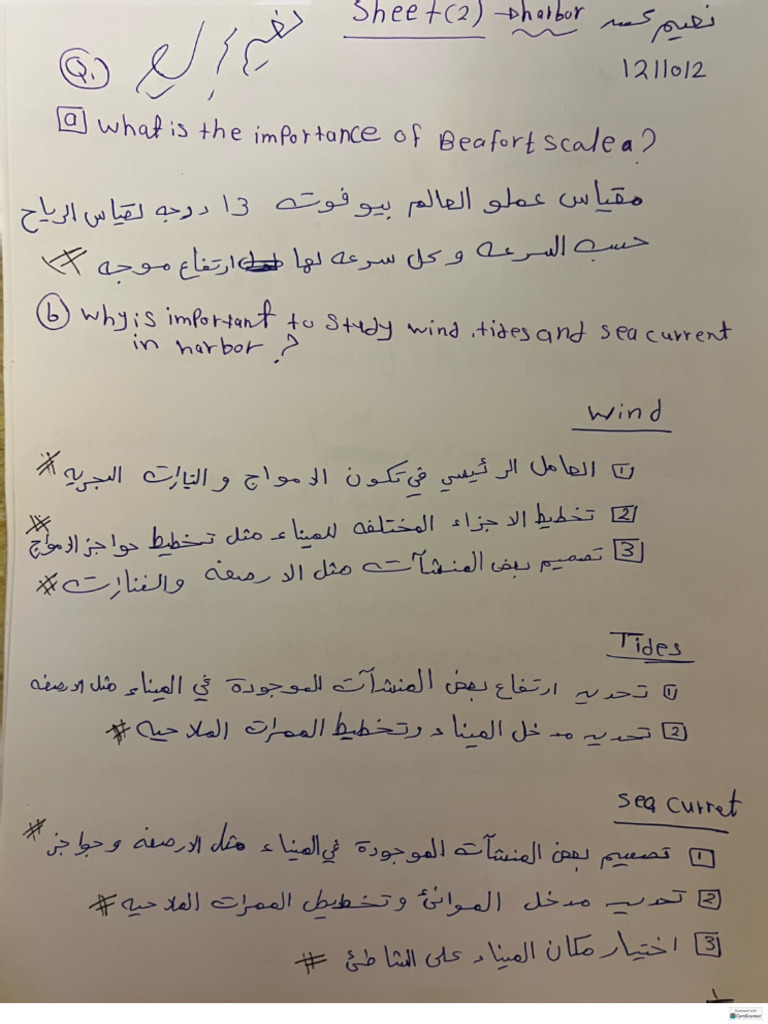 Sheet(2) → harbor
1211012
Q1
a What is the importance of Beafort scale a?
مقياس عملو العالم بيوفوته 13 درجه لقياس الرياح
حسب السرعه وكل سرعه لها ارتفاع موجه #
b Why is important to study wind, tides and sea current
in harbor?
Wind
1 العامل الرئيسي في تكون الامواج والتيارات البحريه #
2 تخطيط الاجزاء المختلفه للميناء مثل تخطيط حواجز الامواج #
3 تصميم بعض المنشآت مثل الارصفه والفنارات #
Tides
1 تحديد ارتفاع بعض المنشآت الموجودة في الميناء مثل الارصفه
2 تحديد مدخل الميناء وتخطيط الممرات الملاحيه #
Sea Curret
1 تصميم بعض المنشآت الموجودة في الميناء مثل الارصفه وحواجز #
2 تحديد مدخل الموانئ وتخطيط الممرات الملاحيه #
3 اختيار مكان الميناء على الشاطئ #
Scanned with
CamScanner